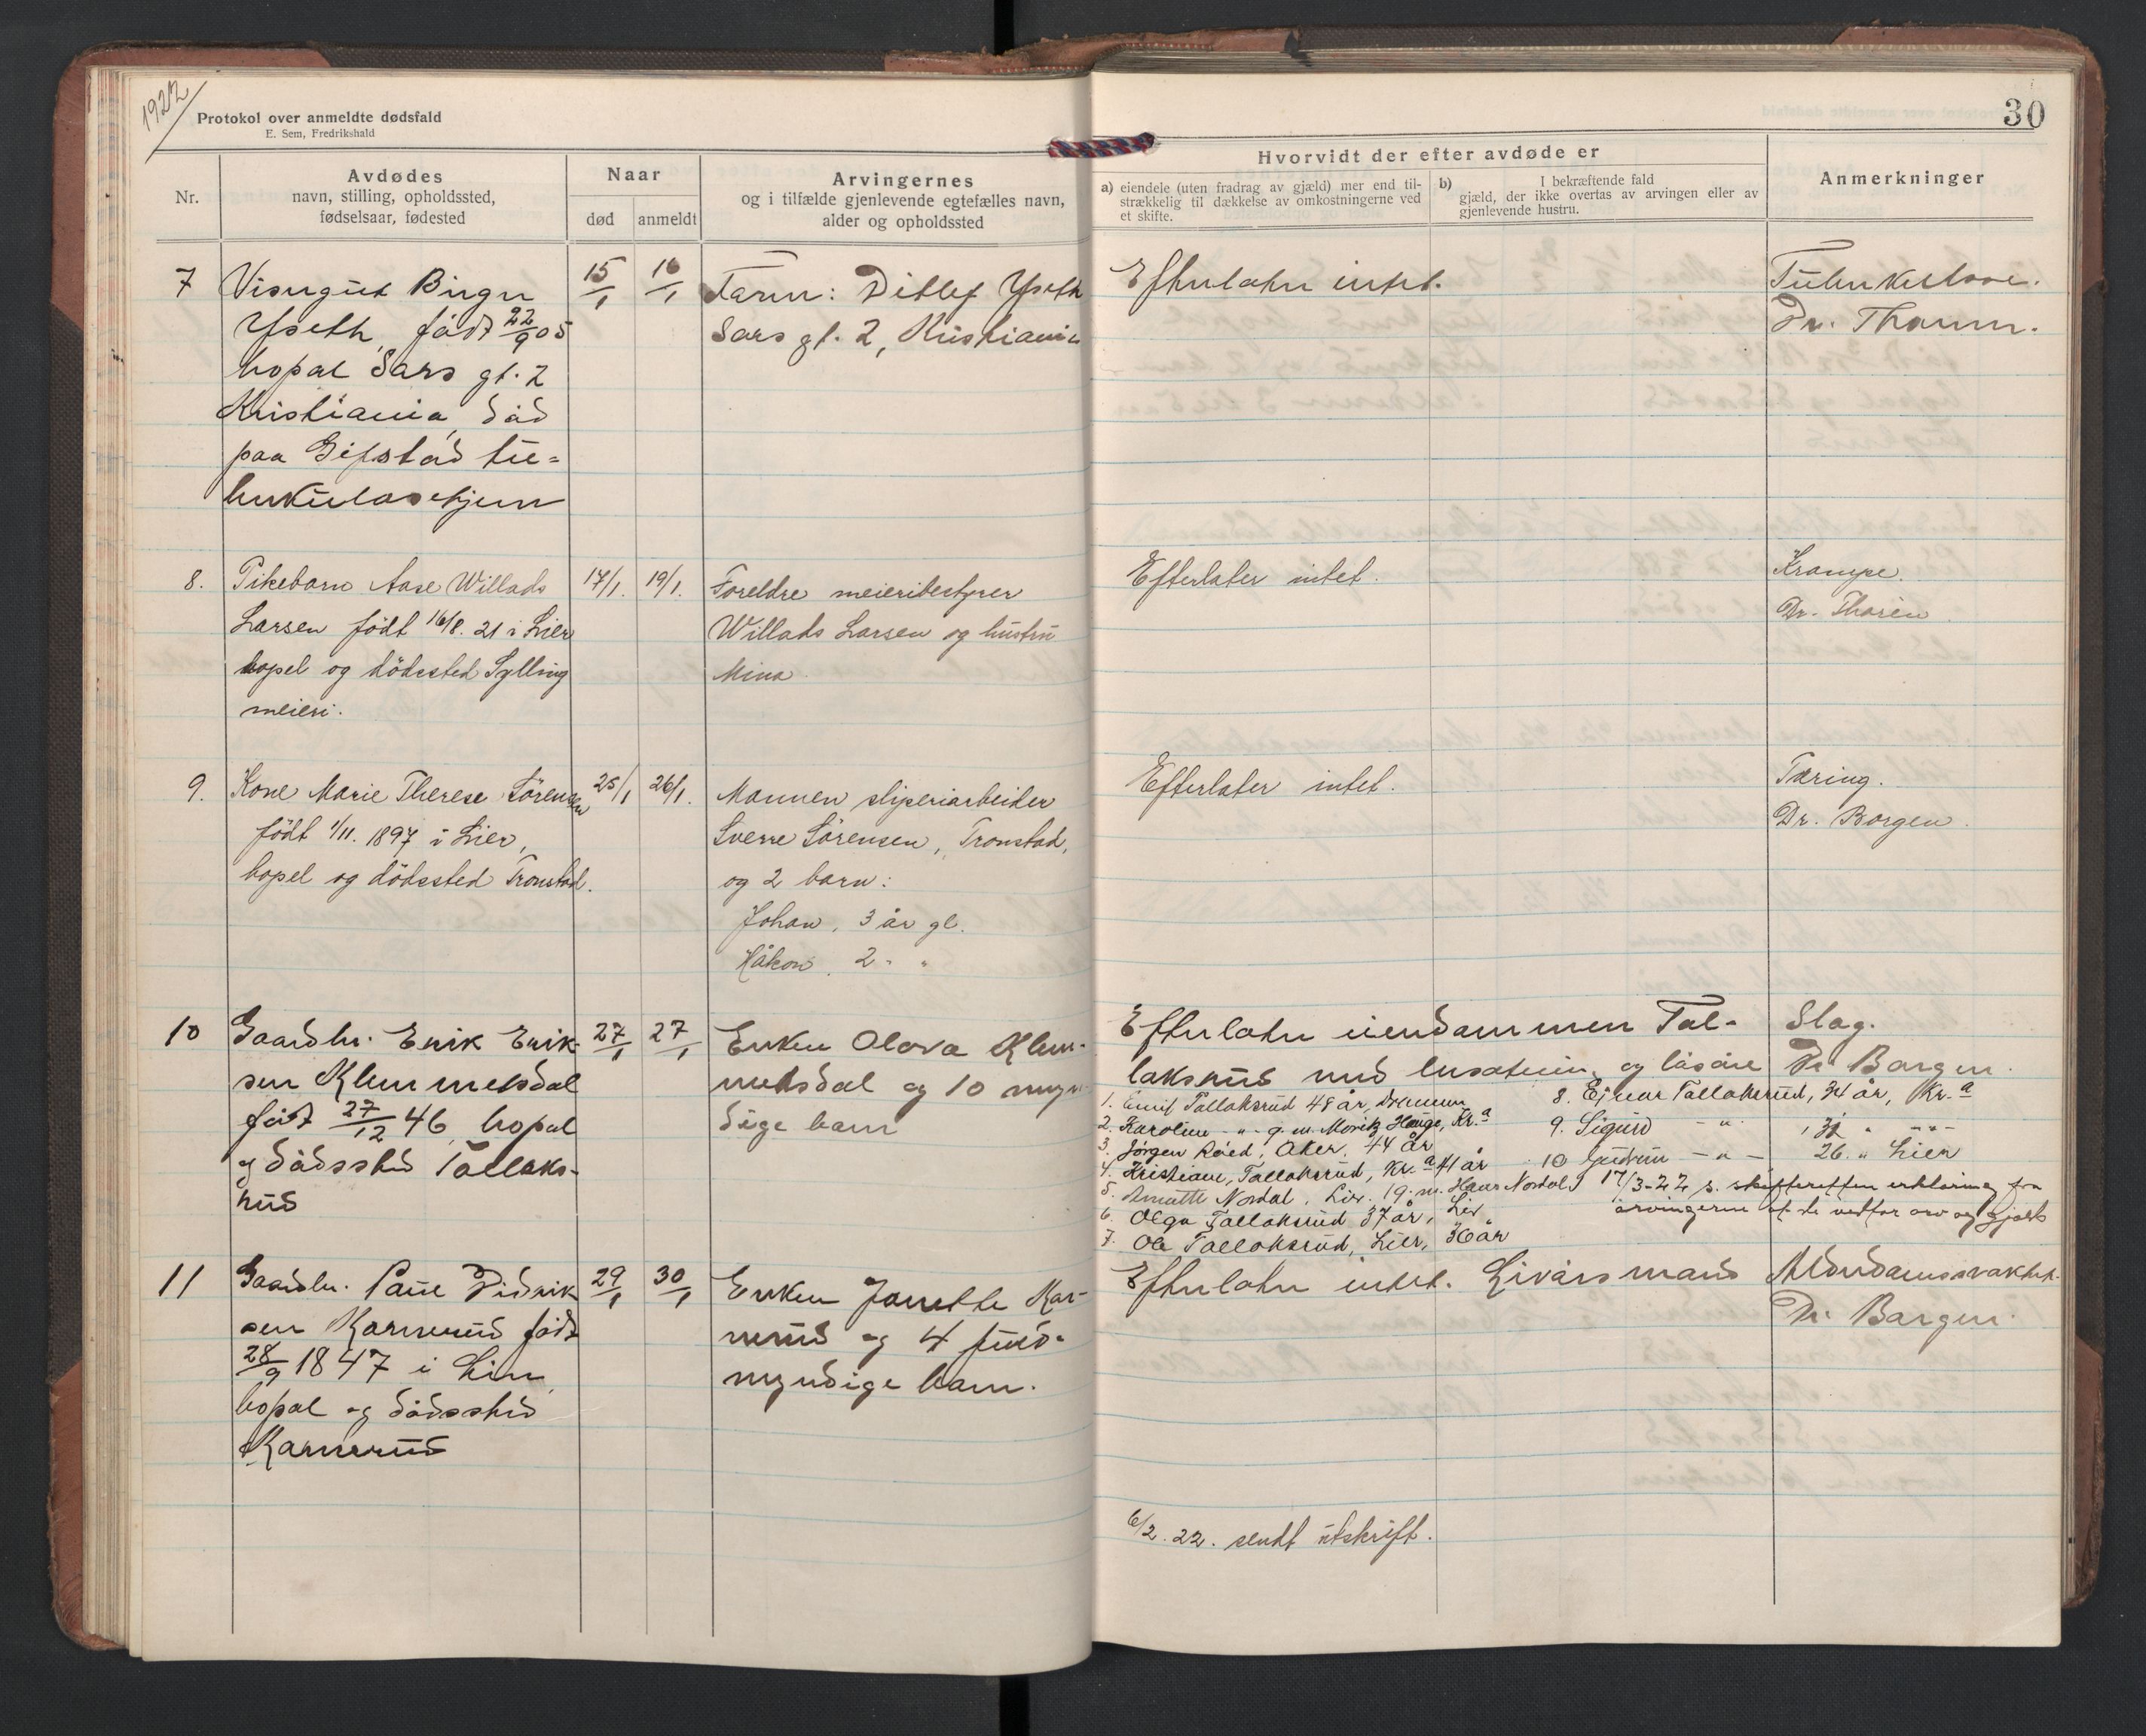 1922
Protokol over anmeldte dødsfald
E. Sem, Fredrikshald
30
Nr.
Avdødes
navn, stilling, opholdssted,
fødselsaar, fødested
Naar
død
anmeldt
Arvingernes
og i tilfælde gjenlevende egtefælles navn,
alder og opholdssted
Hvorvidt der efter avdøde er
a) eiendele (uten fradrag av gjæld) mer end til-
strækkelig til dækkelse av omkostningerne ved
et skifte.
b) I bekræftende fald
gjæld, der ikke overtas av arvingen eller av
gjenlevende hustru.
Anmerkninger
7
Visergut Birger
Yseth, født 22/9 05
bopæl Sars gt. 2
Kristiania, død
paa Gifstad tu=
berkulosehjem
15/1
16/1
Faren: Ditlef Yseth
Sars gt. 2, Kristiania
Efterlater intet.
Tuberkulose.
Dr. Thoren.
8.
Pikebarn Aase Willads
Larsen født 16/8. 21 i Lier
bopel og dödssted Sylling
meieri.
17/1.
19/1.
Foreldre meieribestyrer
Willads Larsen og hustru
Mina
Efterlater intet.
Krampe.
Dr. Thorén
9.
Kone Marie Therese Sörensen
födt 1/11. 1897 i Lier,
bopel og dödssted Tronstad.
25/1
26/1.
Mannen sliperiarbeider
Sverre Sörensen, Tronstad,
og 2 barn:
Johan, 3 år gl.
Håkon, 2 " "
Efterlater intet.
Tæring.
Dr. Borgen.
10
Gaardbr. Erik Erik-
sen Klemmetsdal
født 27/12 46, bopæl
og dødssted Tallaks-
rud
27/1
27/1
Enken Olava Klem-
metsdal og 10 myn-
dige barn
Efterlater eiendommen Tal-
laksrud med besætning og løsøre
Slag.
Dr Borgen.
1. Emil Tallaksrud 48 år, Drammen
2. Karoline - " - g. m. Moritz Hauge, Kr.a
3. Jørgen Röed, Aker, 44 år
4. Kristiane, Tallaksrud, Kr.a 41 år
5. Annette Nordal, Lier. 19. m. Hans Nordal
6. Olga Tallaksrud 37 år, Lier
7. Ole Tallaksrud, Lier, 36 år
8. Ejnar Tallaksrud, 34 år, Kr.a
9. Sigurd - " - , 32 " - " -
10 Gudrun - " - 26. " Lier
17/3-22 s. skifteretten erklæring fra
arvingerne at de vedtar arv og gjæld
11
Gaardbr. Paul Didrik
sen Kannerud født
28/9 1847 i Lier,
bopæl og dødssted
Kannerud
29/1
30/1
Enken Janette Kan-
nerud og 4 fuld-
myndige barn.
Efterlater intet. Livørsmand
Alderdomssvakhet.
Dr. Borgen.
6/2. 22. sendt utskrift.